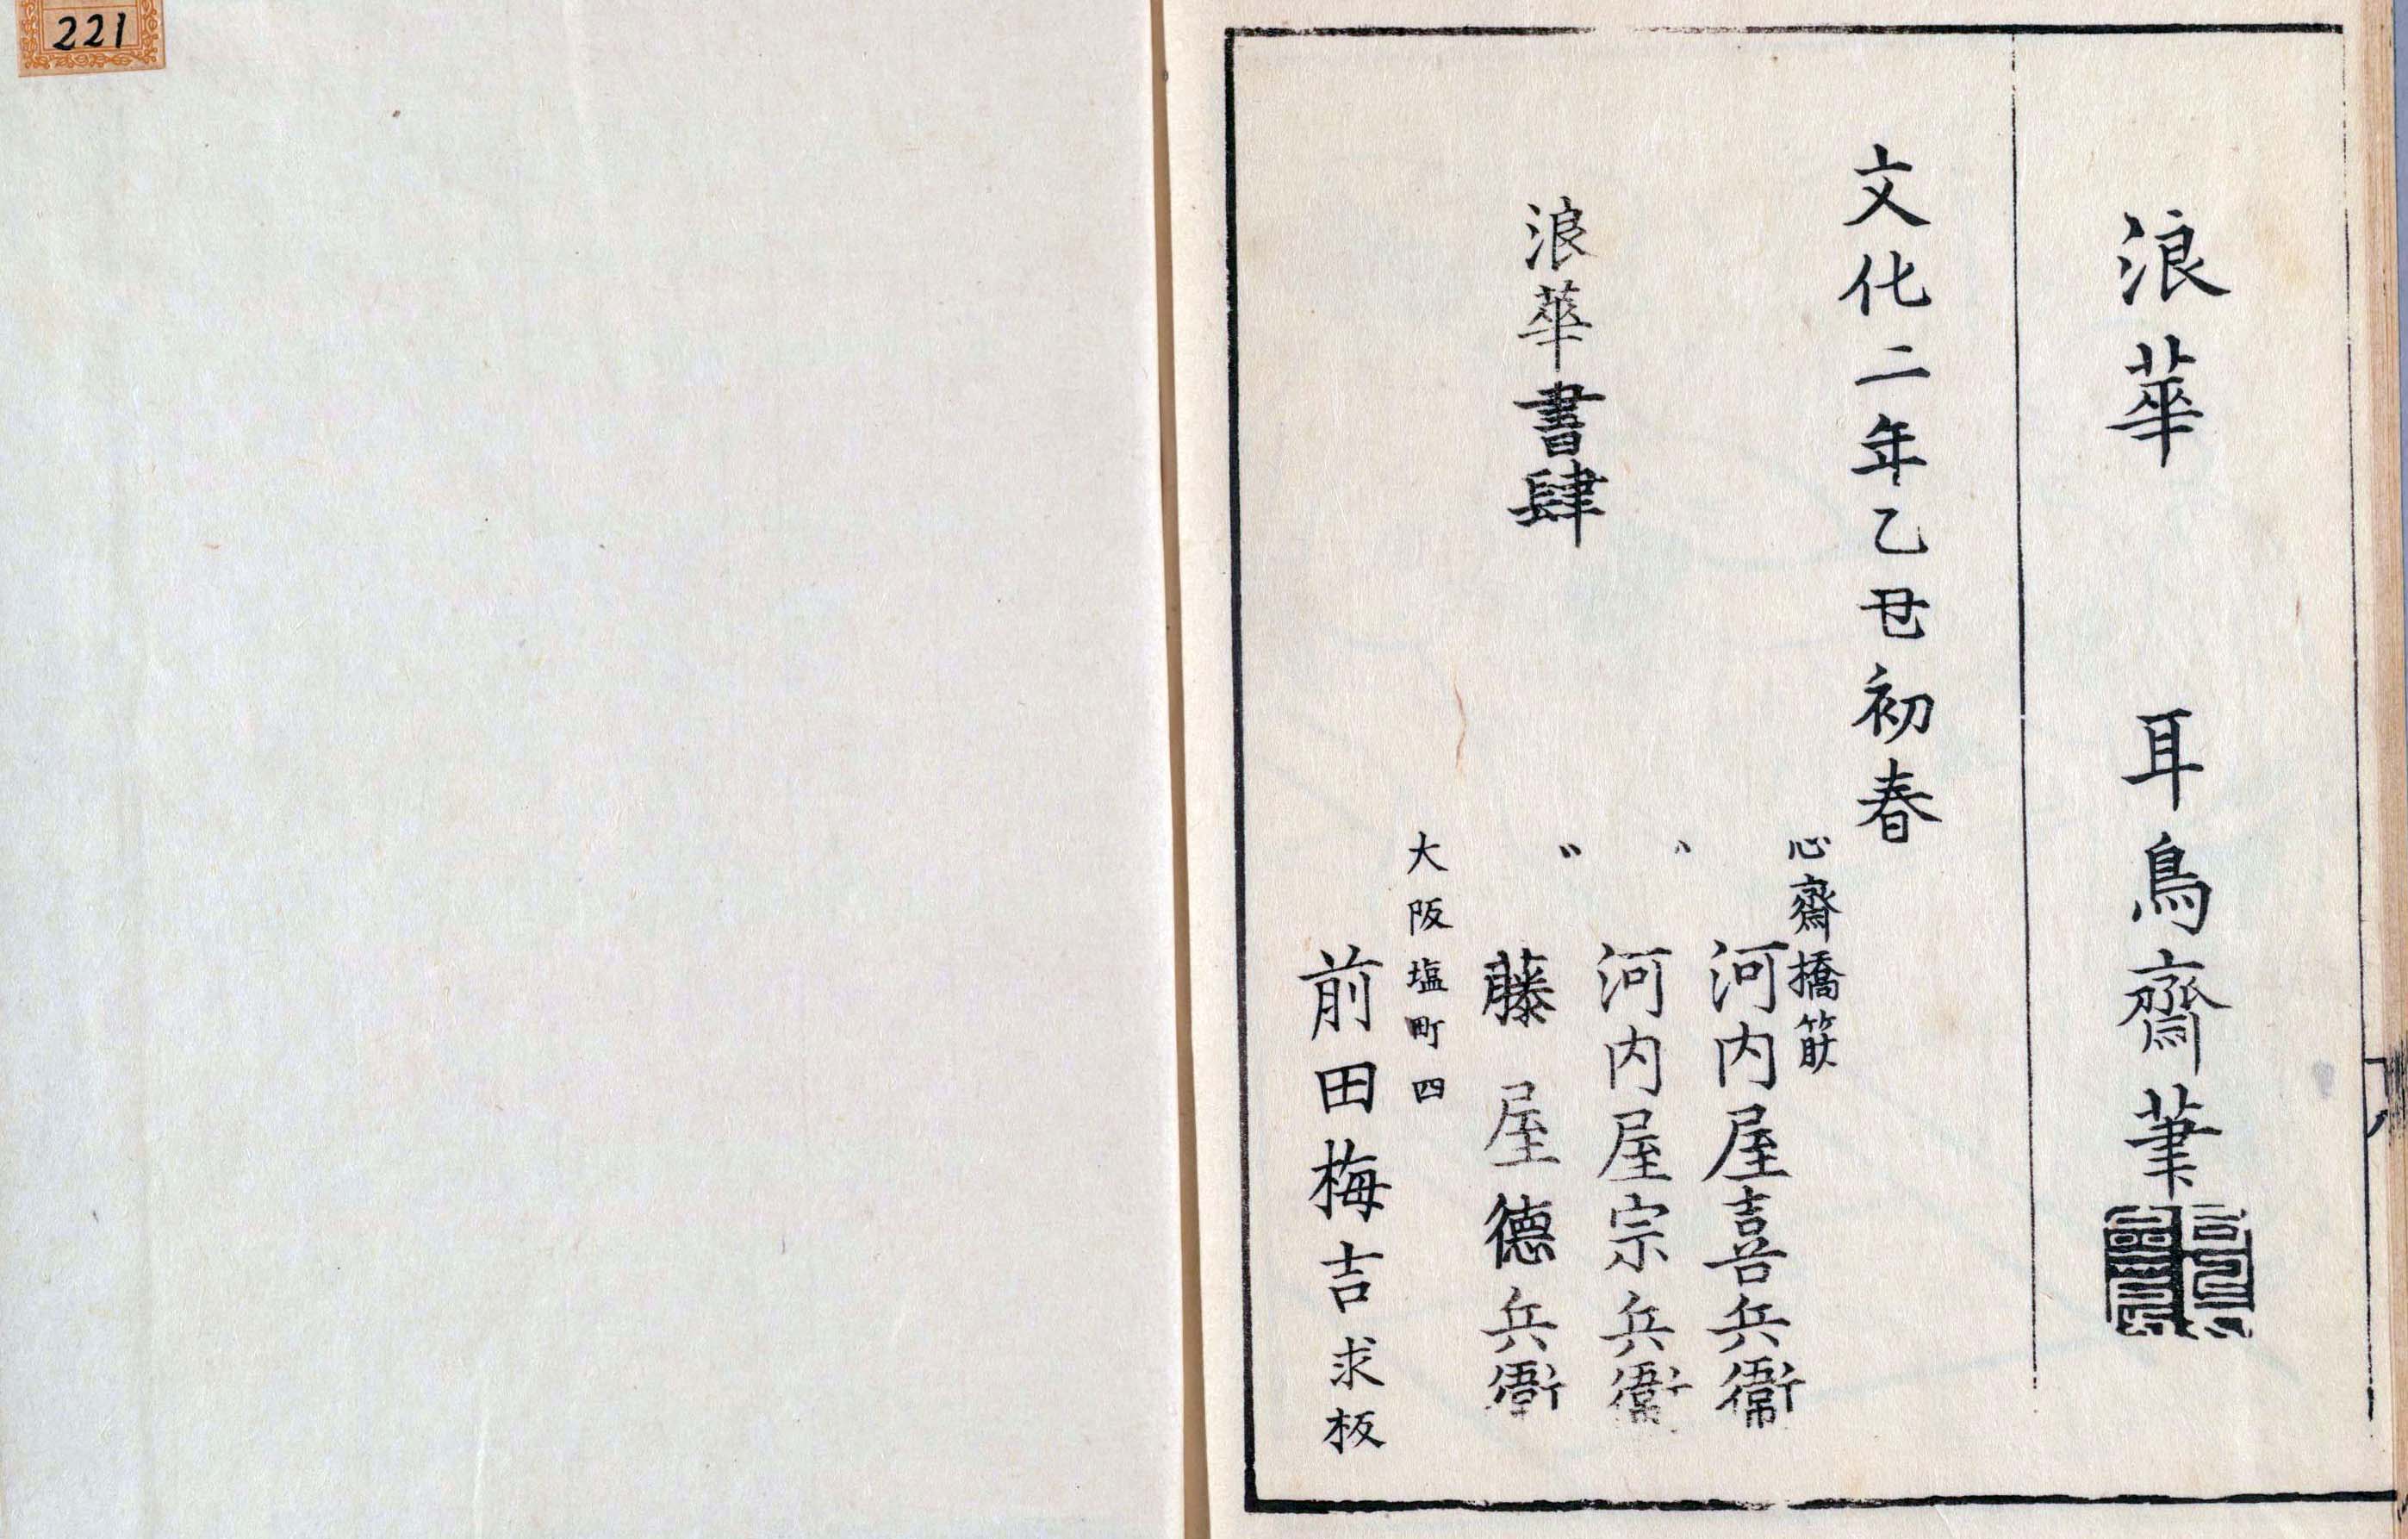 浪華　耳鳥齋筆
文化二年乙丑初春
浪華書肆
心齋橋筋
河内屋喜兵衞
〃
河内屋宗兵衞
〃
藤屋德兵衞
大阪塩町四
前田梅吉求板
221